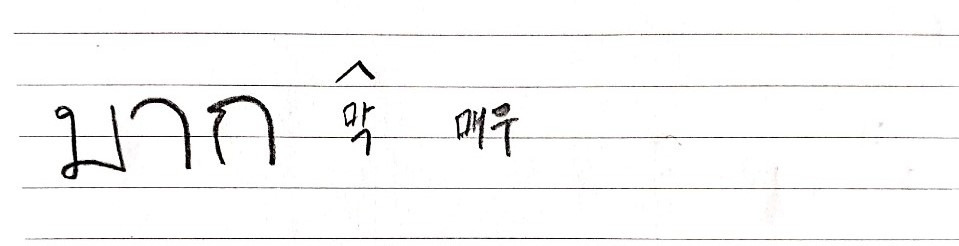 มาก 막 매우